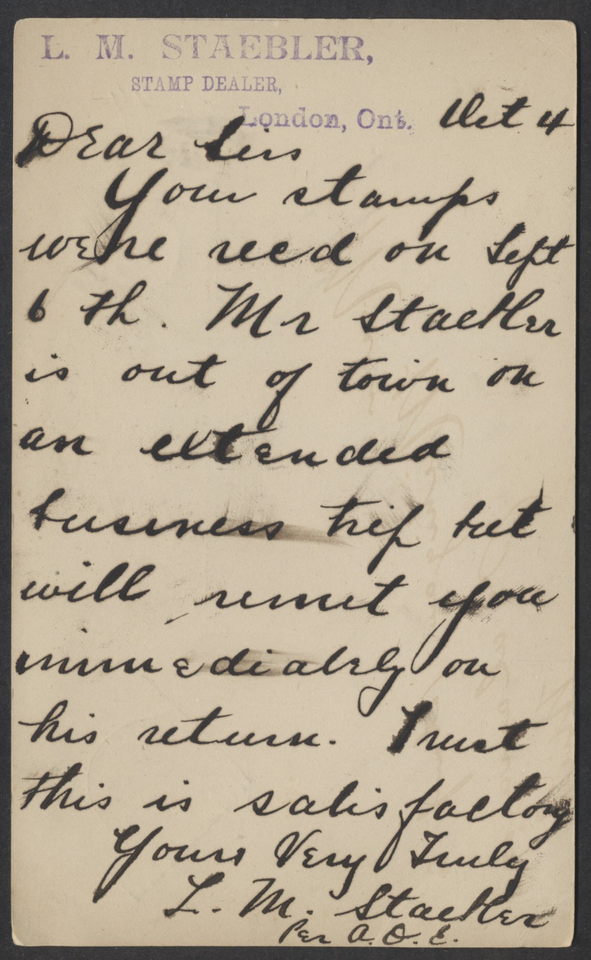 L. M. STAEBLER,
STAMP DEALER,
London, Ont. Oct 4
Dear Sirs
Your stamps
were recd on Sept
6 th. Mr Staebler
is out of town on
an extended
business trip but
will remit you
immediately on
his return. Trust
this is satisfactory
Yours Very Truly
L. M. Staebler
Per A. O. E.